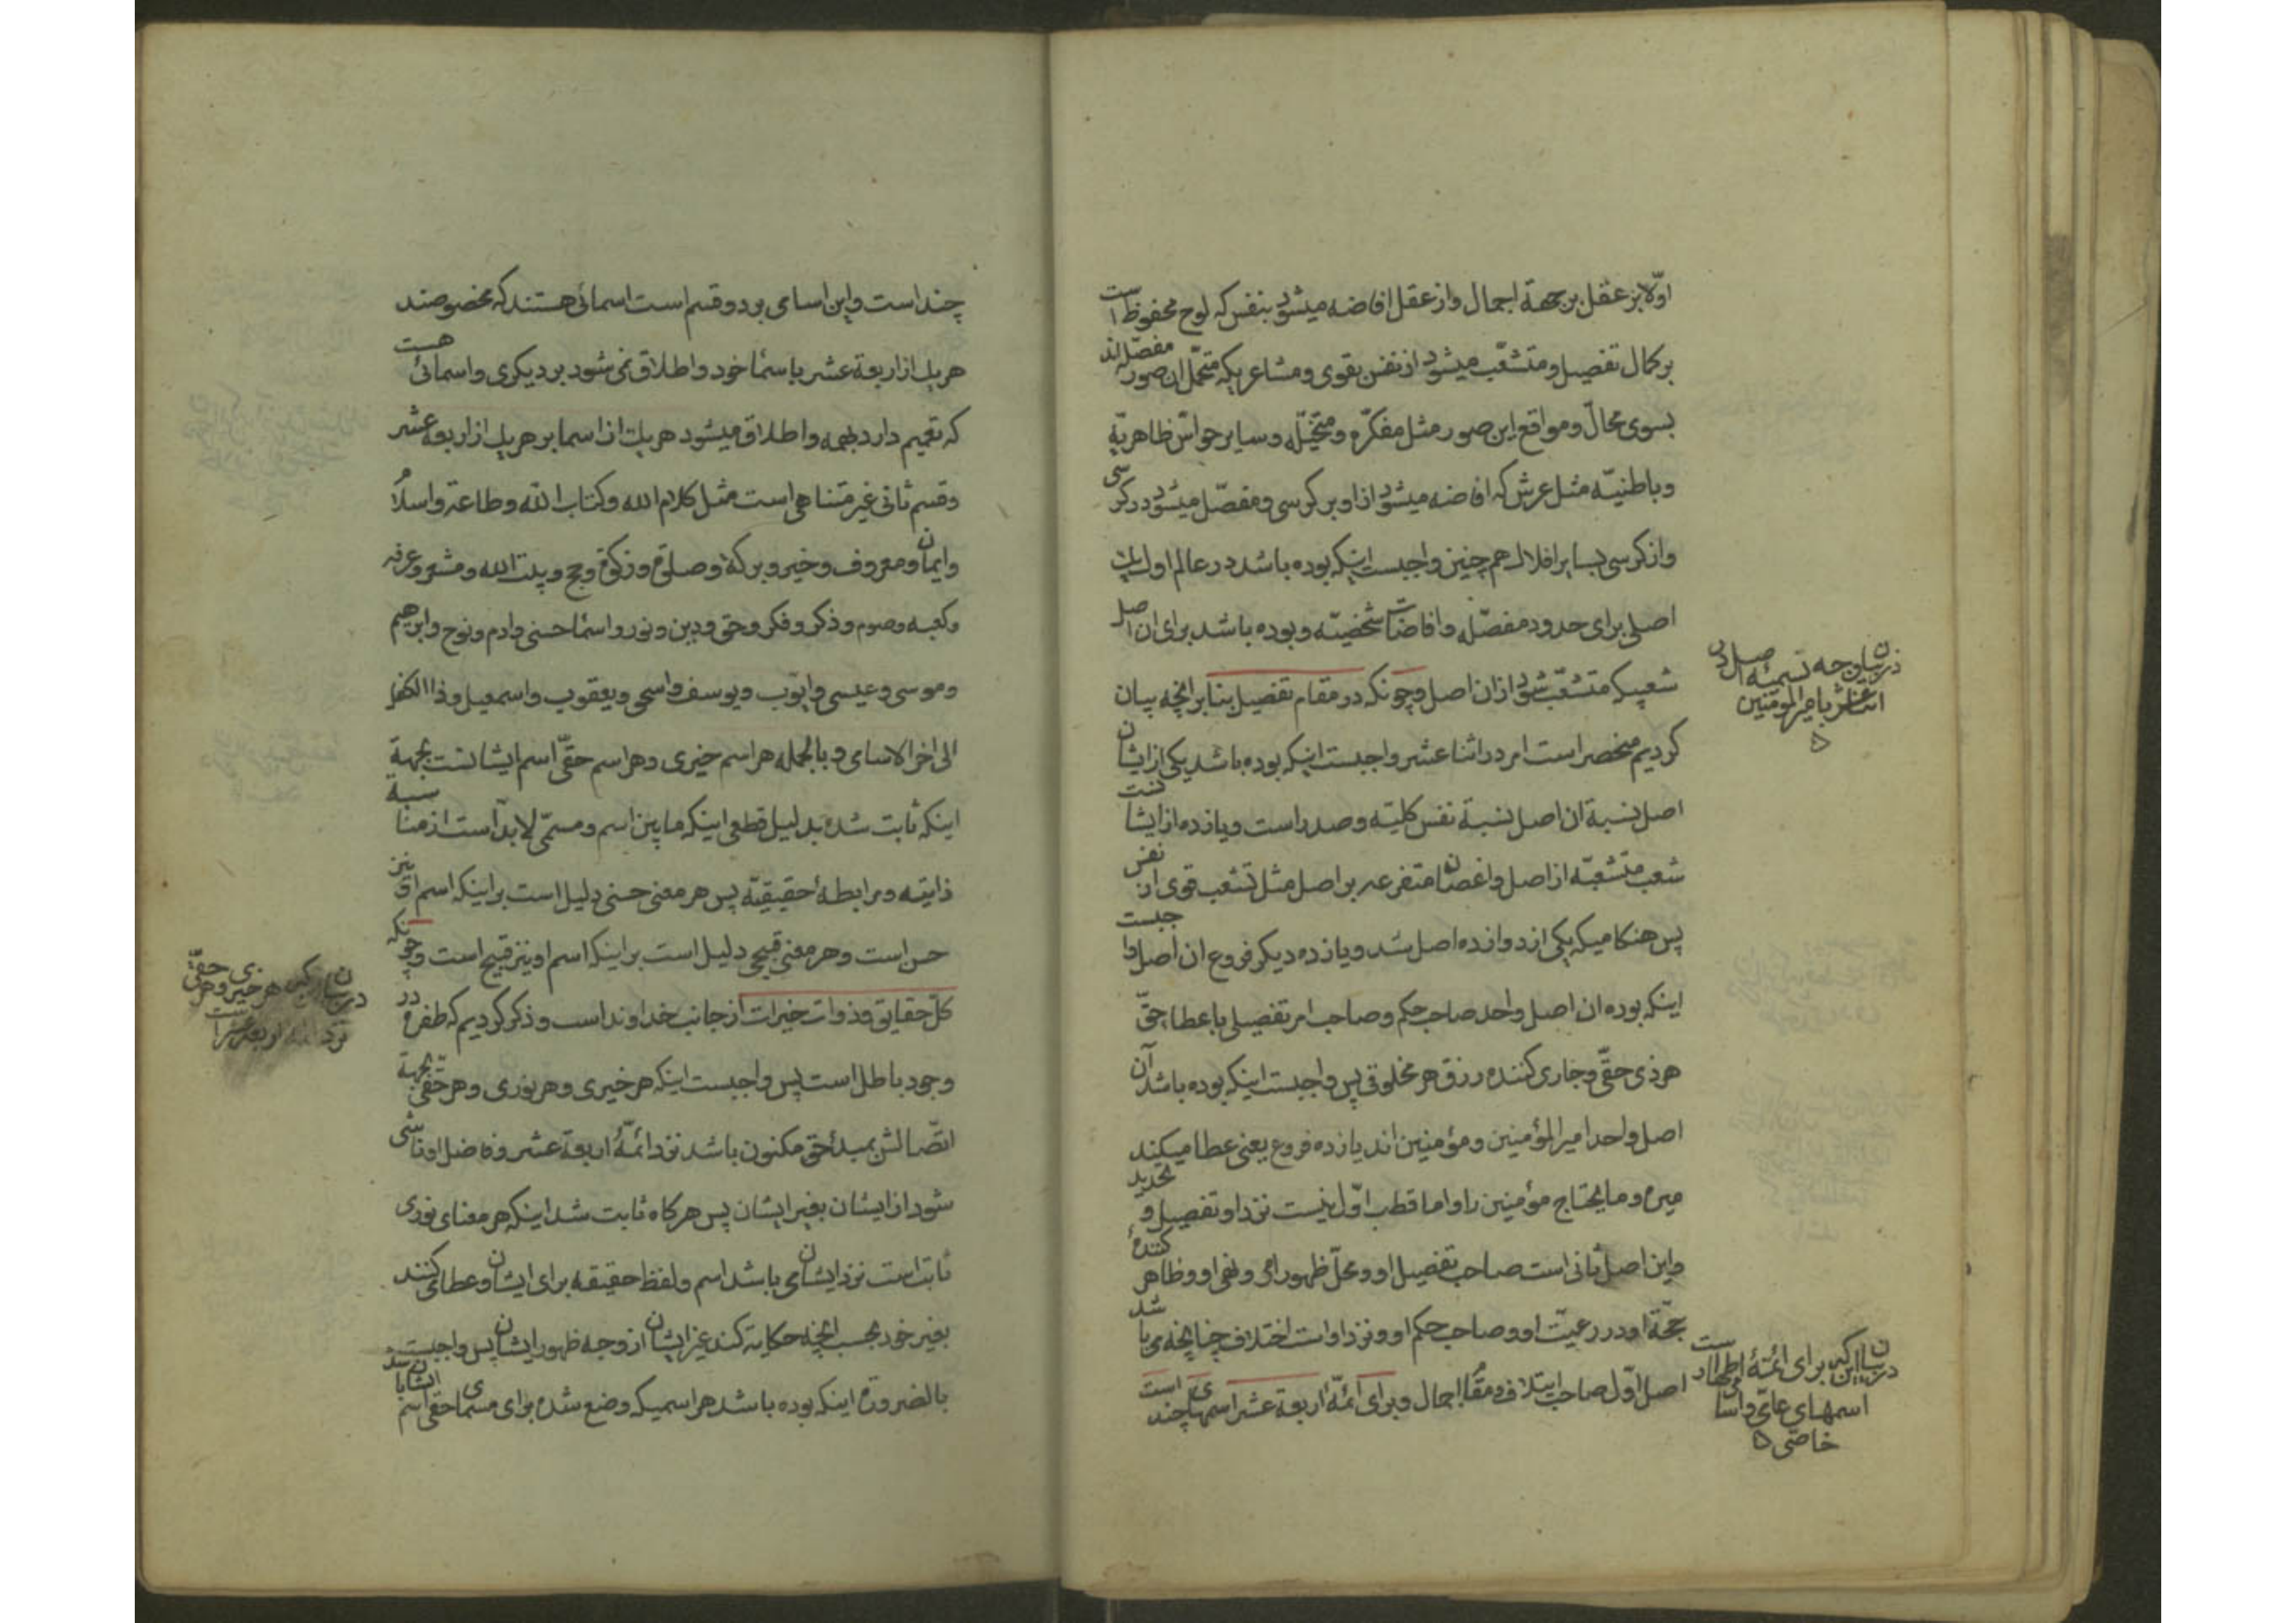 اولا بر عقل بر جهة اجمال و از عقل افاضه میشود بنفس که لوح محفوظ است
بر کمال تفصیل و متشعّب میشود از نفس بقوی و مشاعریکه متحمّل ان صور مفصّله اند
بسوی محالّ و مواقع این صور مثل مفکرّه و متخیّله و سایر حواسّ ظاهریّه
و باطنیّه مثل عرش که افاضه میشود از او بر کرسی و مفصّل میشود در کرسی
و از کرسی بسایر افلاک همچنین واجبست اینکه بوده باشد در عالم اول یك
اصلی برای حدود مفصّله و افاضات شخصیّه و بوده باشد برای ان اصل
شعبیکه متشعّب شود از ان اصل و چونکه در مقام تفصیل بنابر انچه بیان
کردیم منحصر است امر در اثنا عشر واجبست اینکه بوده باشد یکی از ایشان
اصل نسبة ان اصل نسبة نفس کلیّه و صدر است و یازده از ایشان
شعب متشعّبه از اصل و اغصان متفرعه بر اصل مثل تشعب قوی از نفس
پس هنکامیکه یکی از دوازده اصل شد و یازده دیکر فروع ان اصل واجبست
اینکه بوده ان اصل واحد صاحب حکم و صاحب امر تفصیلی باعطا حقّ
هر ذی حقّ و جاری کننده رزق هر مخلوقی پس واجبست اینکه بوده باشد آن
اصل واحد امیر المؤمنین و مؤمنین اند یازده فروع یعنی عطا میکند
میره و ما یحتاج مؤمنین را و اما قطب اوّل نیست نزد او تفصیل و تحدید
و این اصل ثانی است صاحب تفصیل او و محلّ ظهور امر و نهی او و ظاهر کنندهٔ
حجّة او در رعیّت او و صاحب حکم او و نزد اوات اختلاف چنانچه می باشد
اصل اوّل صاحب ایتلاف در مقام اجمال و برای ائمّه اربعة عشر اسمهای چند است
در بیان وجه تسمیه اصل در
اثنا عشر بامیر المومنین
در بیان اینکه برای ائمّهٔ اطهار است
اسمهای عامّی و اسامی
خاصّی
چند است و این اسامی بر دو قسم است اسمائی هستند که مخصوصند
هر یك از اربعة عشر باسماء خود و اطلاق نمی شود بر دیکری و اسمائی هست
که تعمیم دارد بهمه و اطلاق میشود هر یك از ان اسما بر هر یك از اربعة عشر
و قسم ثانی غیر متناهی است مثل کلام الله و کتاب الله و طاعة و اسلام
و ایمان و معروف و خیر و برکة و صلوة و زکوة و حج و بیت الله و مشعر و عرفه
و کعبه و صوم و ذکر و فکر و حق و دین و نور و اسماء حسنی و ادم و نوح و ابرهیم
و موسی و عیسی و ایّوب و یوسف و اسحق و یعقوب و اسمعیل و ذا الکفل
الی اخر الاسامی و بالجمله هر اسم خیری و هر اسم حقّی اسم ایشانست بجهة
اینکه ثابت شده بدلیل قطعی اینکه ما بین اسم و مسمّی لا بدّ است از مناسبة
ذاتیه و رابطهٔ حقیقیّه پس هر معنی حسنی دلیل است بر اینکه اسم او نیز
حسن است و هر معنی قبیحی دلیل است بر اینکه اسم او نیز قبیح است و چونکه
کلّ حقایق و ذوات خیرات از جانب خداوند است و ذکر کردیم که طفره در
وجود باطل است پس واجبست اینکه هر خیری و هر نوری و هر حقّی بجهة
اتّصالش بمبدأ حق مکنون باشد نزد ائمّهٔ اربعة عشر و فاضل او ناشی
شود از ایشان بغیر ایشان پس هرکاه ثابت شد اینکه هر معنای نوری
ثابت است نزد ایشان می باشد اسم و لفظ حقیقه برای ایشان و عطا می کنند
بغیر خود بحسب انچه حکایة کند غیر ایشان از وجه ظهور ایشان پس واجبست
بالضرورة اینکه بوده باشد هر اسمیکه وضع شده برای مسمای حقی اسم ایشان باشد
در بیان اینکه هر خیری و هر حقّی
نزد ائمه اربعة عشر است